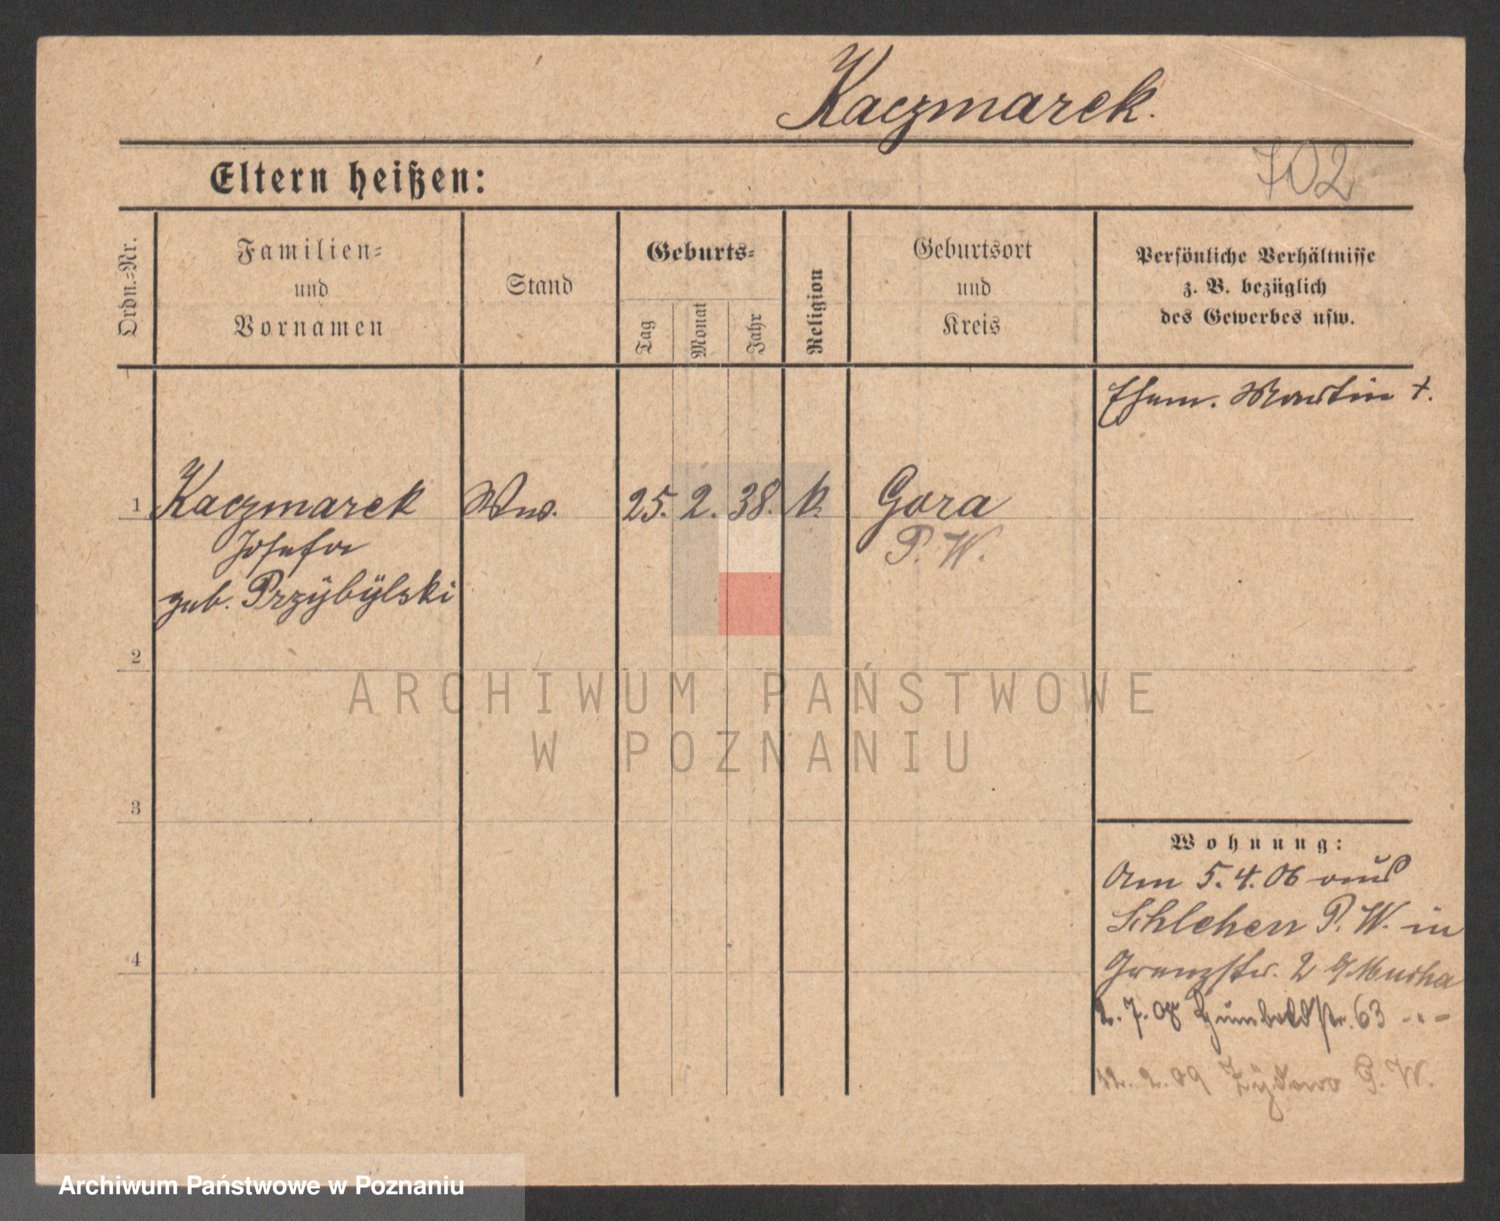 Kaczmarek.
702
Eltern heißen:
Ordn.=Nr.
Familien=
und
Vornamen
Stand
Geburts=
Tag
Monat
Jahr
Religion
Geburtsort
und
Kreis
Persönliche Verhältnisse
z. B. bezüglich
des Gewerbes usw.
Ehem. Martin †.
1 Kaczmarek Ww. 25. 2. 38. k. Gora
Josefa P. W.
geb. Przÿbÿlski
2
3
4
Wohnung:
Am 5.4.06 aus
Schlehen P. W. in
Grenzstr. 2
2.7.08 Humboldstr. 63 -"-
12.2.09 P. W.
ARCHIWUM PAŃSTWOWE
W POZNANIU
Archiwum Państwowe w Poznaniu